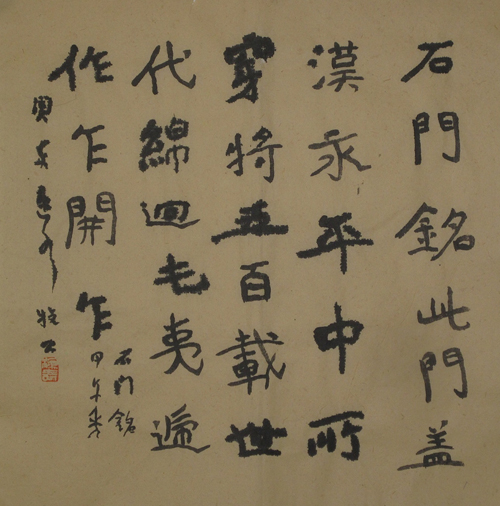 石門銘此門盖
漢永平中所
穿將五百載世
代綿迴夷遞
作乍開乍
石門銘
甲午